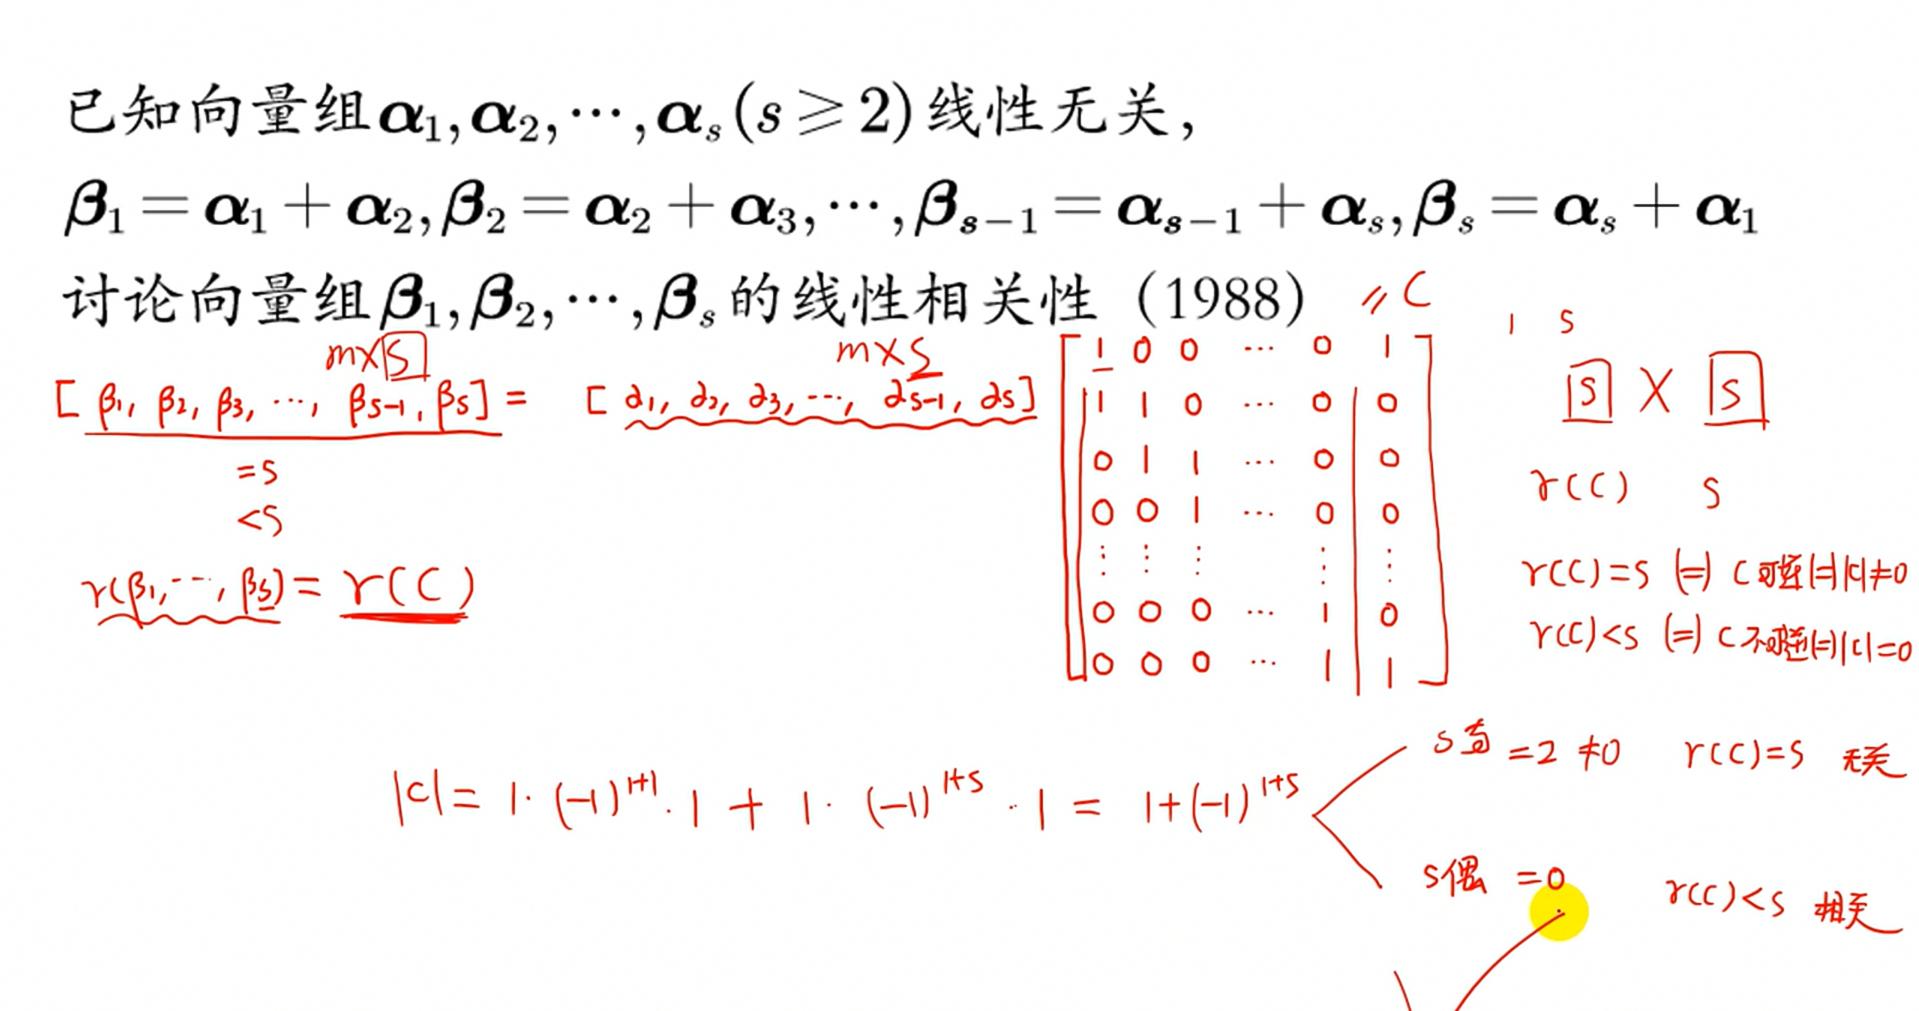 已知向量组α₁,α₂,⋯,αₛ(s⩾2)线性无关,
β₁=α₁+α₂,β₂=α₂+α₃,⋯,βₛ₋₁=αₛ₋₁+αₛ,βₛ=αₛ+α₁
讨论向量组β₁,β₂,⋯,βₛ的线性相关性（1988）
m×s
m×s
[β₁, β₂, β₃, ⋯, βs-1, βs] = [α₁, α₂, α₃, ⋯, αs-1, αs]
1 0 0 ⋯ 0 1
1 1 0 ⋯ 0 0
0 1 1 ⋯ 0 0
0 0 1 ⋯ 0 0
⋮ ⋮ ⋮ ⋮ ⋮
0 0 0 ⋯ 1 0
0 0 0 ⋯ 1 1
= C
1 s
s × s
=s
<s
r(β₁, ⋯, βs) = r(C)
r(C) s
r(C)=s (=) C可逆(=)|C|≠0
r(C)<s (=) C不可逆(=)|C|=0
|C| = 1·(-1)¹⁺¹·1 + 1·(-1)¹⁺ˢ·1 = 1+(-1)¹⁺ˢ
s奇 =2 ≠0 r(C)=s 无关
s偶 =0 r(C)<s 相关